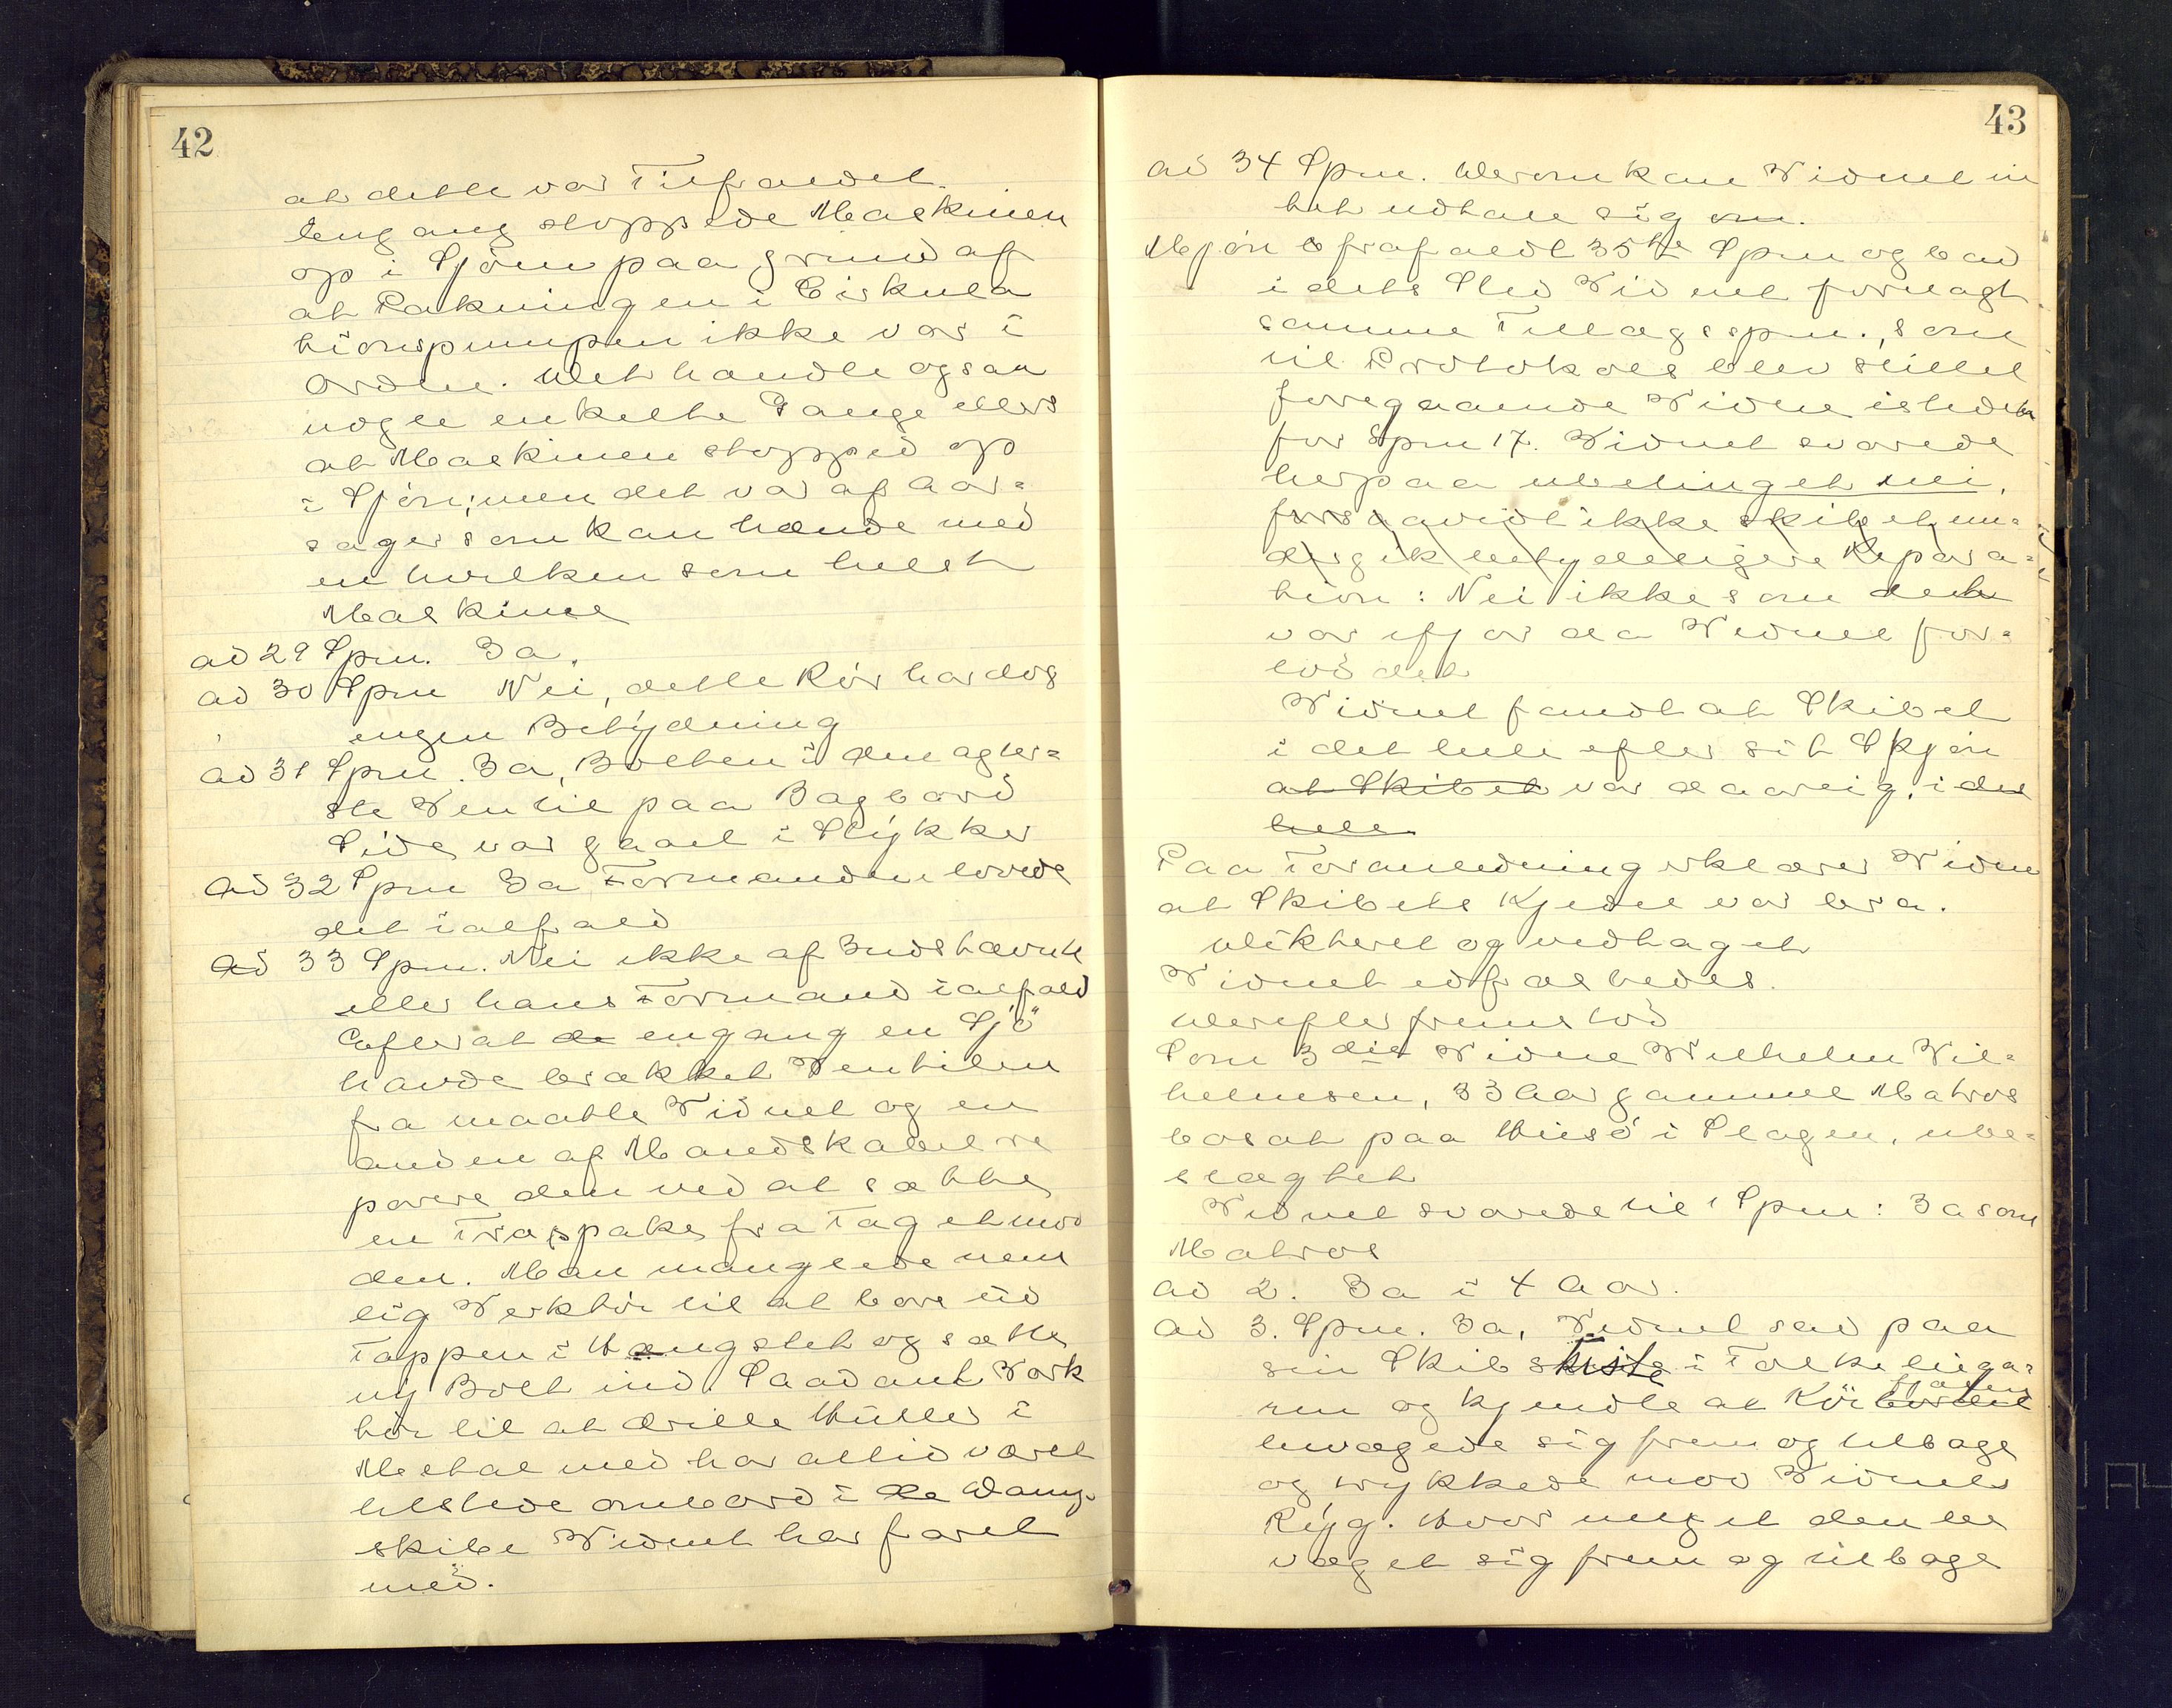 42
at dette var Tilfældet.
Engang stoppede Maskinen
op i Sjöen paa grund af
at Pakningen i Cirkula
tionspumpen ikke var i
Orden. Det hændte ogsaa
nogle enkelte Gange ellers
at Maskinen stopped op
i Sjöen; men det var af Aar=
sager som kan hænde med
en hvilken som helst
Maskine
ad 29 Spm. Ja.
ad 30 Spm Nei, dette Rör har dog
ingen Betydning
ad 31 Spm. Ja, Bolten i den agter=
ste Ventil paa Bagbord
Side var gaaet i Stykker
Ad 32 Spm Ja Formanden lovede
det ialfald
Ad 33 Spm. Nei ikke af Indstævnte
eller hans Formand ialfald
Efterat de engang en Sjö
havde brækket Ventilen
fra maatte Vidnet og en
anden af Mandskabet re
parere den ved at sætte
en Træspake fra Taget mod
den. Man manglede nem
lig Verktöi til at bore ud
Tappen i Hængslet og sætte
ny Bolt ind. Saadant Værk
töi til at drille Huller i
Metal med har altid været
tilstede ombord i de Damp-
skibe Vidnet har faret
med.
43
Ad 34 Spm. Derom kan Vidnet in
tet udtale sig om.
Mjön frafaldt 35te Spm og bad
i dets Sted Vidnet forelagt
samme Tillægsspm., som
til Protokols blev stillet
foregaaende Vidne istedetn
for Spm 17. Vidnet svarede
herpaa ubetinget nei,
forsaavidt ikke skibet un=
dergik betydeligere Repara=
tion: Nei ikke som det
var ifjor da Vidnet for=
lod det
Vidnet fandt at Skibet
i det hele efter sit Skjön
at Skibet var daarlig. i det
hele
Paa Foranledning erklærer Vidne
at Skibets Kjedel var bra.
Dikteret og vedtaget
Vidnet edfæstedes.
Derefter fremstod
Som 3die Vidne Wilhelm Vil=
helmsen, 33 Aar gammel Matros
bosat paa Husö i Slagen, ube=
slægtet
Vidnet svarede til 1 Spm: Ja som
Matros
Ad 2. Ja i 4 Aar.
Ad 3. Spm. Ja, Vidnet sad paa
sin Skibskiste i Folkeluga=
ren og kjendte at Köi
bevægede sig frem og tilbage
og rykkede mod Vidnets
Ryg. Hvor meget den be
væget sig frem og tilbage